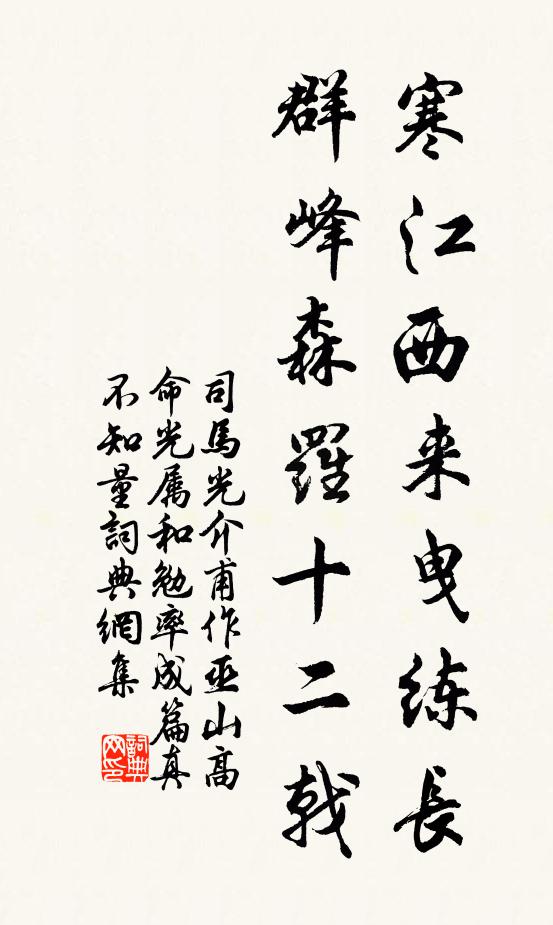 寒江西来曳练長
群峰森羅十二戟
司馬光介甫作巫山高
命光属和勉率成篇真
不知量詞典網集
詞典网印